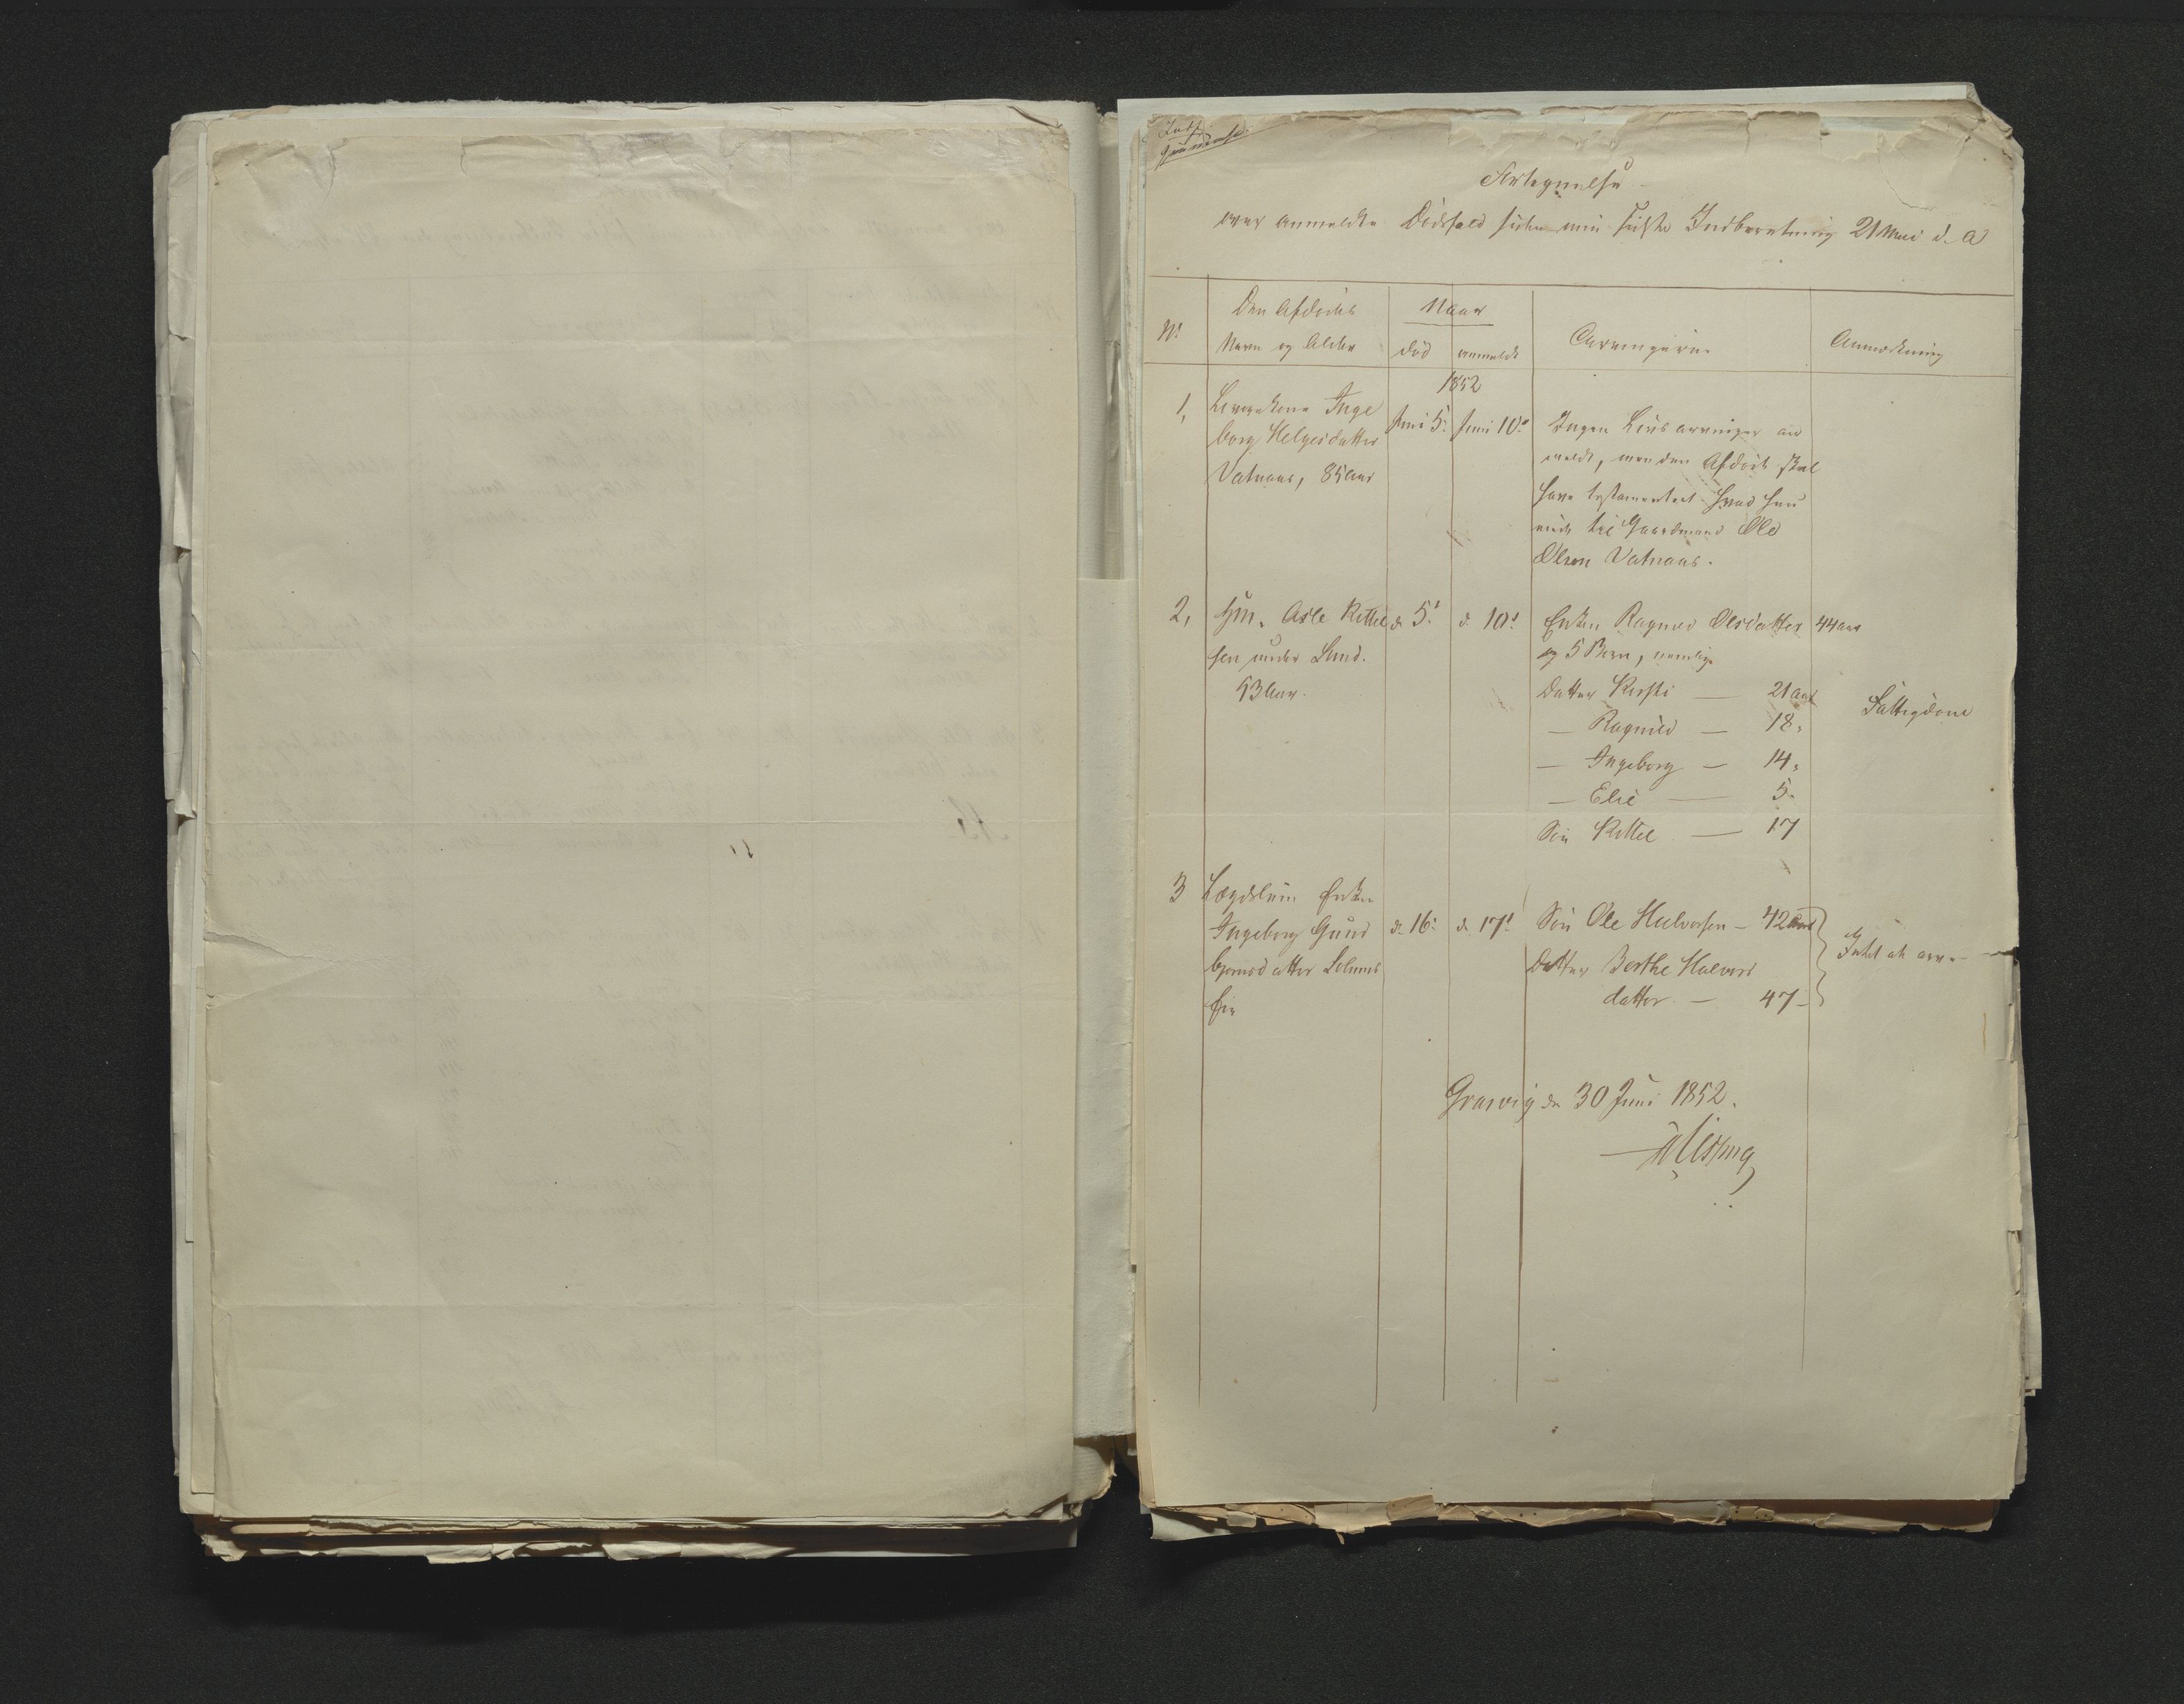 Fortegnelse
over anmeldte Dödsfald siden min sidste Indberetning 21 Mai d. A
No
Den Afdödes
Navn og Alder
Naar
död
anmeldt
Arvingerne
Anmærkning
1852
1,
Inge
borg Helgesdatter
Vatnaas, 85 Aar
Juni 5.
Juni 10.
Ingen Livsarvinger an
meldt, men den Afdöde skal
have testamenteret hvad hun
eiede til Gaardmand Ole
Olsen Vatnaas.
2,
Hm. Asle Kittel
sen under Lund.
53 Aar.
d. 5.
d. 10.
Enken Ragnild Olsdatter 44 aar
og 5 Börn, nemlig
Datter Kirsti — 21 aar
— Ragnild — 18 "
— Ingeborg — 14 "
— Elie — 5 -
Sön Kittel — 17
Fattigdom
3
Lægdslem Enken
Ingeborg Gund
björnsdatter
Eie
d. 16.
d. 17.
Sön Ole Halvorsen — 42 aar
Datter Berthe Halvors
datter — 47 -
Intet at arve
Grosvig den 30 Juni 1852.